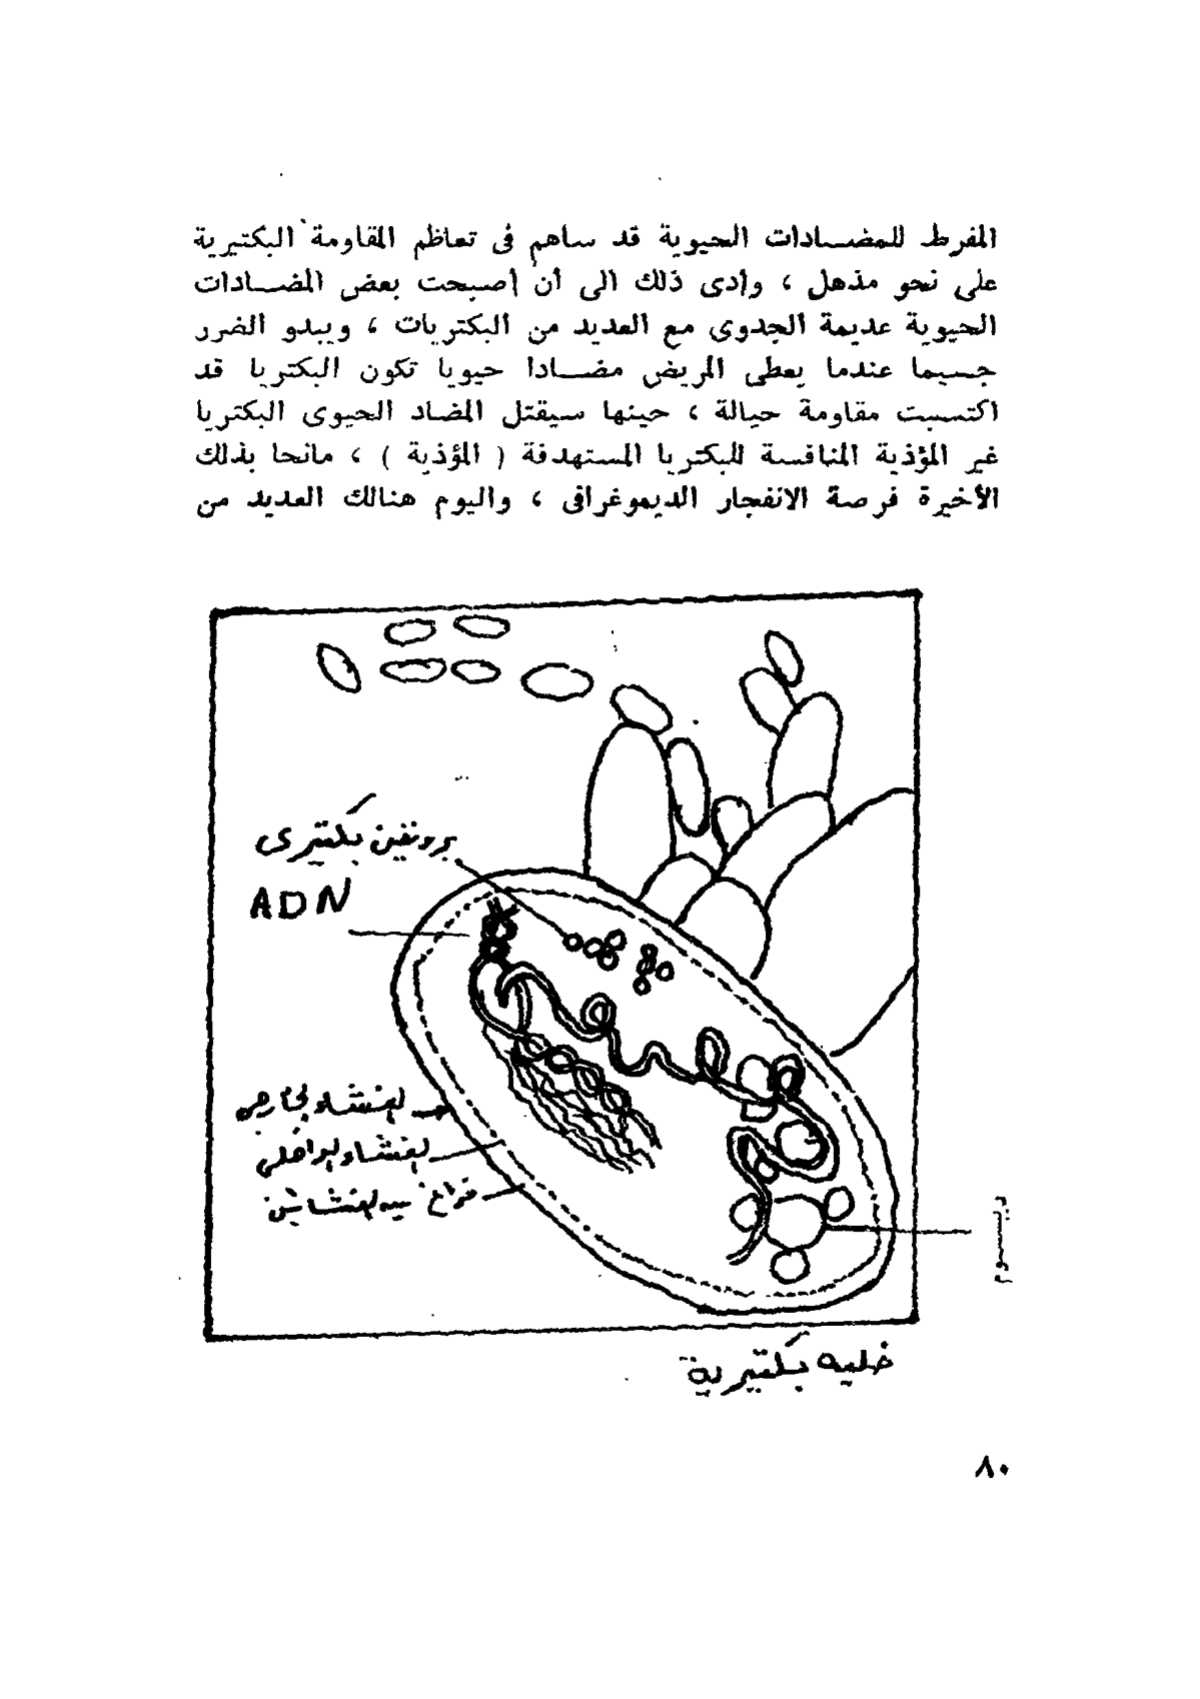 المفرط للمضادات الحيوية قد ساهم فى تعاظم المقاومة البكتيرية
على نحو مذهل ، وأدى ذلك الى أن أصبحت بعض المضادات
الحيوية عديمة الجدوى مع العديد من البكتريات ، ويبدو الضرر
جسيما عندما يعطى المريض مضادا حيويا تكون البكتريا قد
اكتسبت مقاومة حياله ، حينها سيقتل المضاد الحيوى البكتريا
غير المؤذية المنافسة للبكتريا المستهدفة ( المؤذية ) ، مانحا بذلك
الأخيرة فرصة الانفجار الديموغرافى ، واليوم هنالك العديد من
بروتين بكتيرى
ADN
الغشاء الخارجى
الغشاء الداخلى
فراغ بين الغشائين
خليه بكتيرية
٨٠